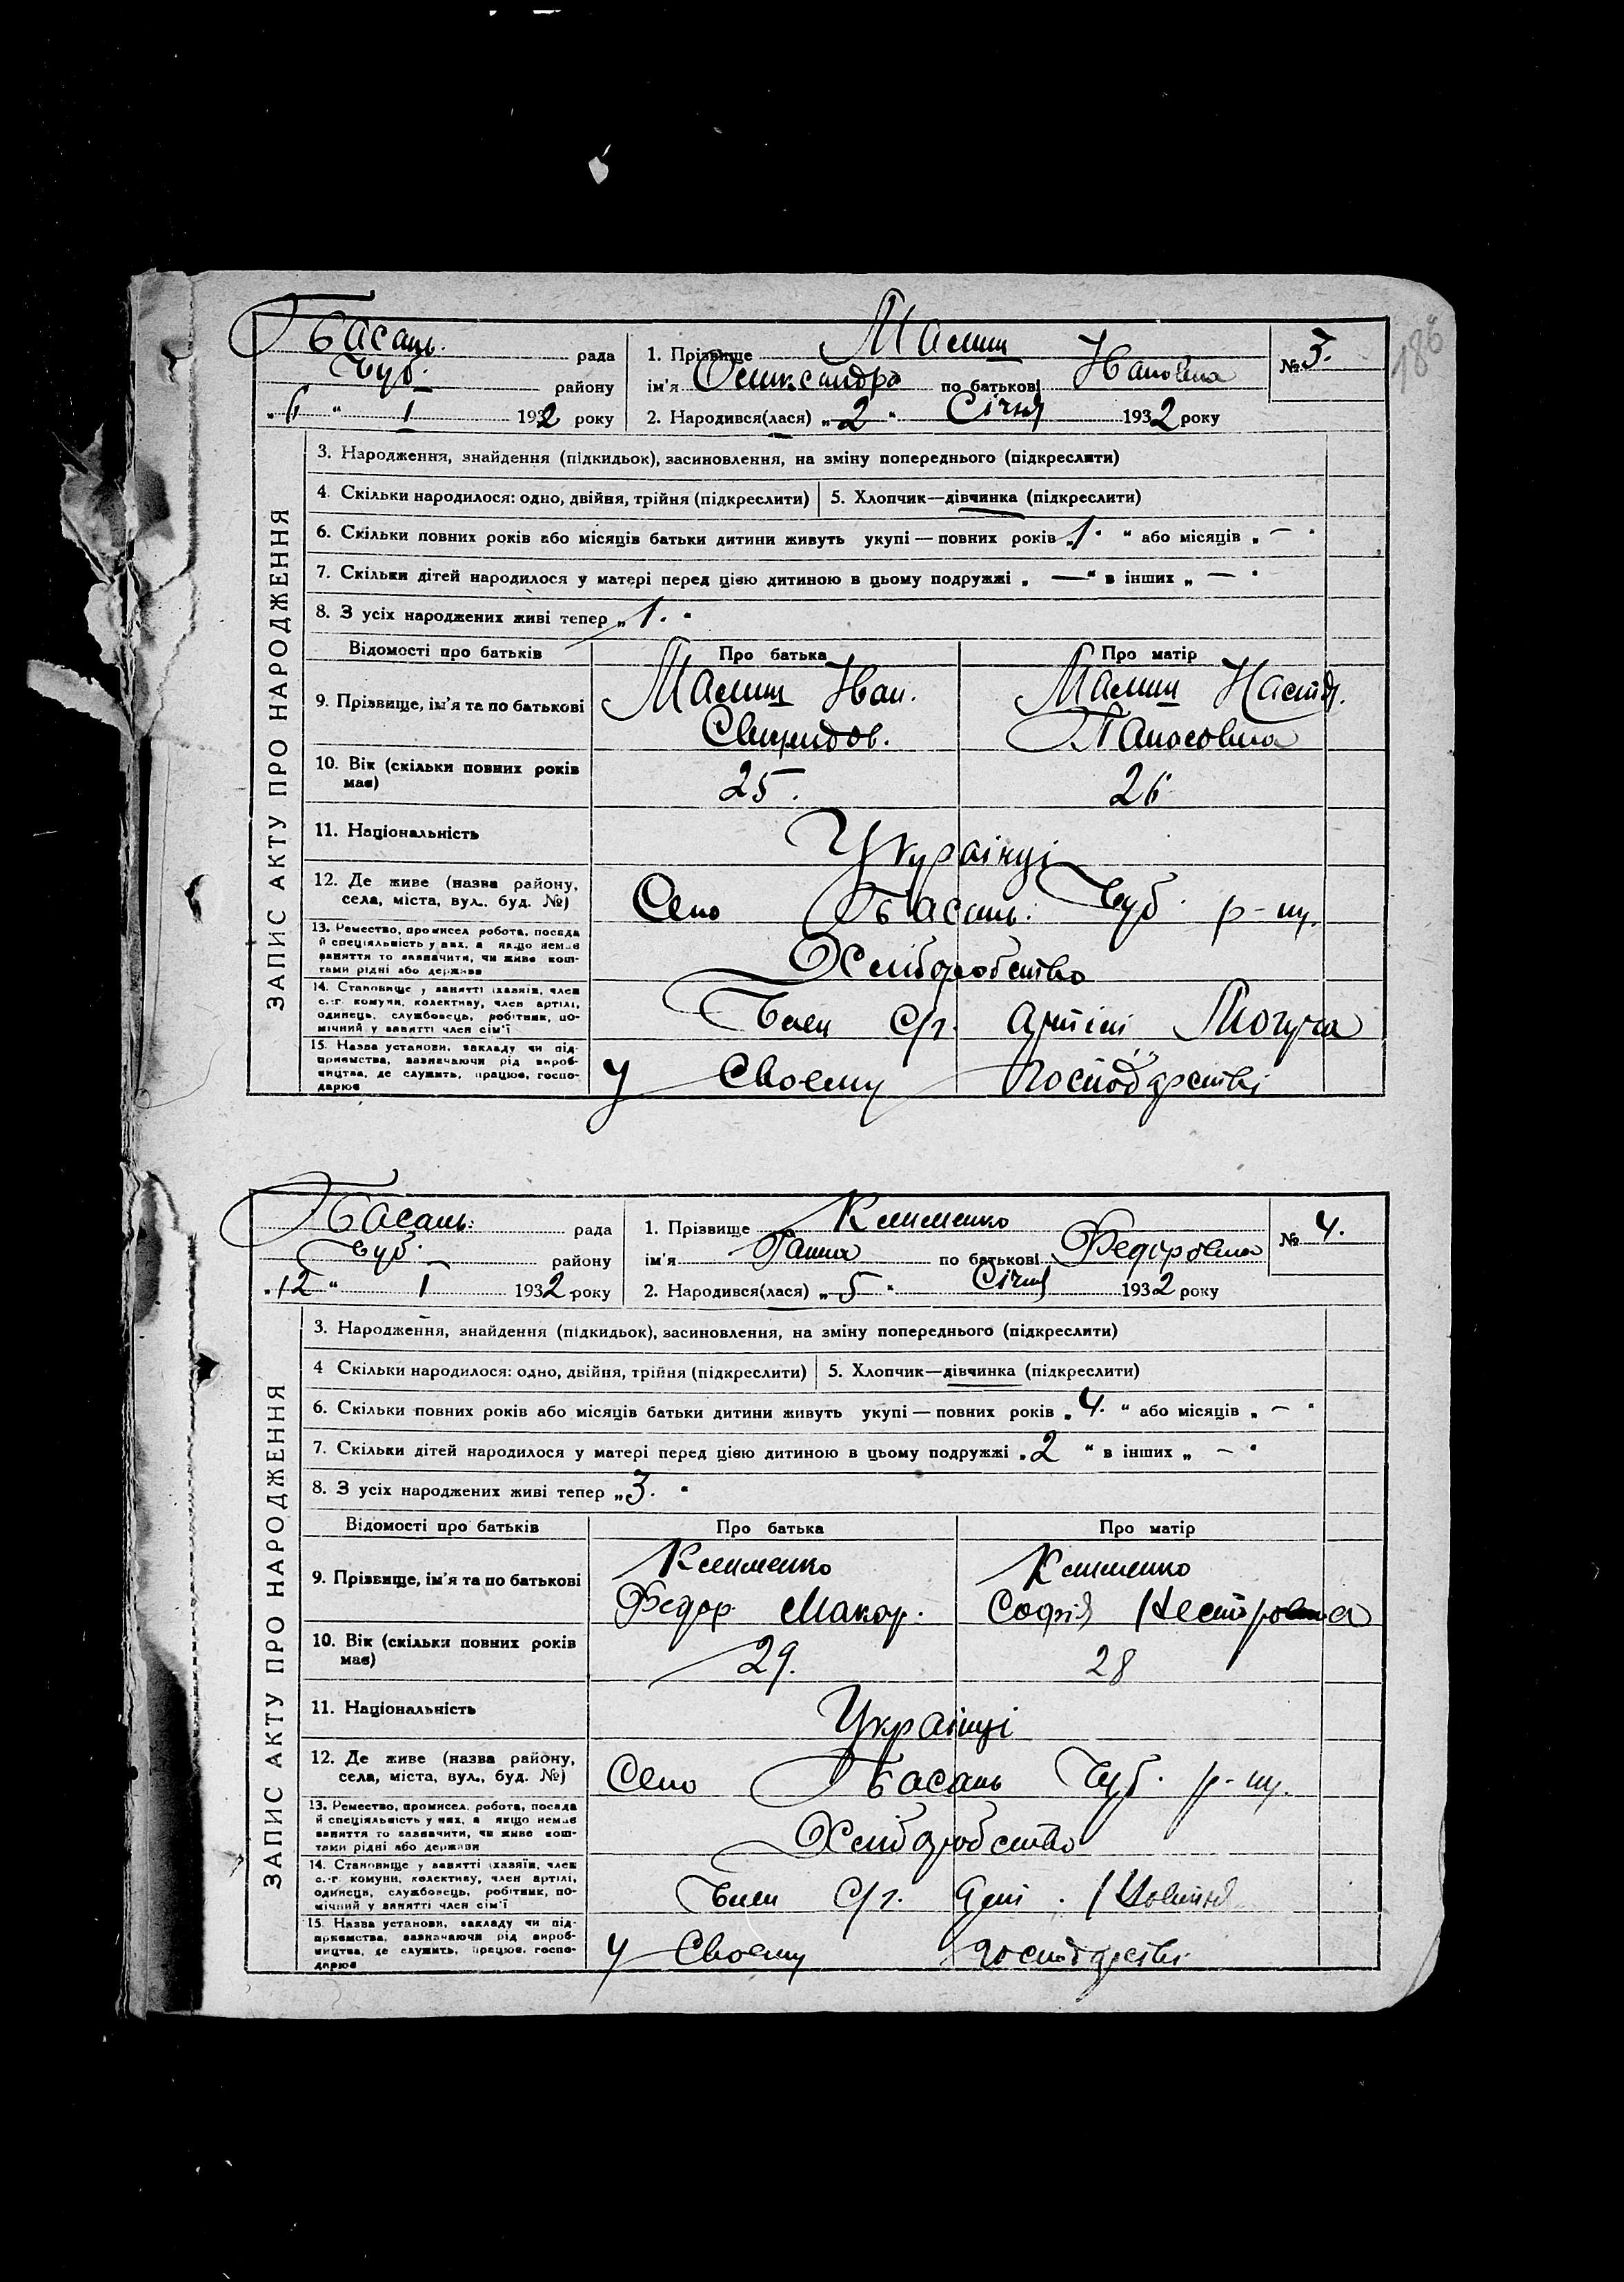 186
Басань. рада
Чуб. району
„6“ I 1932 року
1. Прізвище Малиш
ім'я Олександра по батькові Івановна
2. Народився(лася) „2“ Січня 1932 року
№ 3.
ЗАПИС АКТУ ПРО НАРОДЖЕННЯ
3. Народження, знайдення (підкидьок), засиновлення, на зміну попереднього (підкреслити)
4. Скільки народилося: одно, двійня, трійня (підкреслити) 5. Хлопчик—дівчинка (підкреслити)
6. Скільки повних років або місяців батьки дитини живуть укупі — повних років „1.“ або місяців „—“
7. Скільки дітей народилося у матері перед цією дитиною в цьому подружжі „—“ в інших „—“
8. З усіх народжених живі тепер „1.“
Відомості про батьків Про батька Про матір
9. Прізвище, ім'я та по батькові Малиш Іван. Малиш Настя.
Свиридов. Панасовна
10. Вік (скільки повних років має) 25. 26
11. Національність Українці
12. Де живе (назва району, села, міста, вул., буд. №) Село Басань. Чуб. р-ну.
13. Ремество, промисел, робота, посада й спеціяльність у них, а якщо немає заняття то зазначити, чи живе коштами рідні або держави Хліборобство
14. Становище у занятті (хазяїн, член с.-г. комуни, колективу, член артілі, одинець, службовець, робітник, помічний у занятті член сім'ї Член С/г. артілі Могуча
15. Назва установи, закладу чи підприємства, зазначаючи рід виробництва, де служить, працює, господарює У Своему господарстві
Басань. рада
Чуб. району
„12“ I 1932 року
1. Прізвище Клименко
ім'я Ганна по батькові Федоровна
2. Народився(лася) „5“ Січня 1932 року
№ 4.
ЗАПИС АКТУ ПРО НАРОДЖЕННЯ
3. Народження, знайдення (підкидьок), засиновлення, на зміну попереднього (підкреслити)
4 Скільки народилося: одно, двійня, трійня (підкреслити) 5. Хлопчик—дівчинка (підкреслити)
6. Скільки повних років або місяців батьки дитини живуть укупі — повних років „4.“ або місяців „—“
7. Скільки дітей народилося у матері перед цією дитиною в цьому подружжі „2“ в інших „—“
8. З усіх народжених живі тепер „3.“
Відомості про батьків Про батька Про матір
9. Прізвище, ім'я та по батькові Клименко Клименко
Федор Макар. Софія Нестеровна
10. Вік (скільки повних років має) 29. 28
11. Національність Українці
12. Де живе (назва району, села, міста, вул., буд. №) Село Басань Чуб. р-ну.
13. Ремество, промисел, робота, посада й спеціяльність у них, а якщо немає заняття то зазначити, чи живе коштами рідні або держави Хліборобство
14. Становище у занятті (хазяїн, член с.-г. комуни, колективу, член артілі, одинець, службовець, робітник, помічний у занятті член сім'ї Член С/г.
15. Назва установи, закладу чи підприємства, зазначаючи рід виробництва, де служить, працює, господарює У Своему господарстві